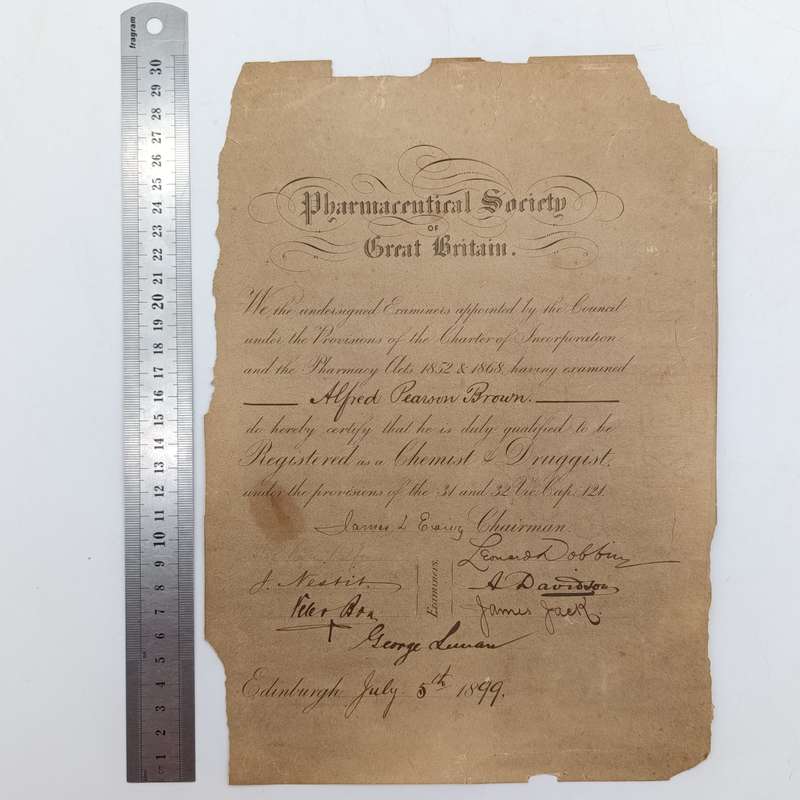 fragram
30
29
28
27
26
25
24
23
22
21
20
19
18
17
16
15
14
13
12
11
10
9
8
7
6
5
4
3
2
1
Pharmaceutical Society
OF
Great Britain.
We the undersigned Examiners appointed by the Council
under the Provisions of the Charter of Incorporation
and the Pharmacy Acts 1852 & 1868, having examined
Alfred Pearson Brown.
do hereby certify that he is duly qualified to be
Registered as a Chemist & Druggist,
under the provisions of the 31 and 32 Vic. Cap. 121.
James L Ewing Chairman.
Leonard Dobbin
J. Nesbit
Examiners.
A Davidson
Peter Boa
James Jack.
George Lunan
Edinburgh July 5th 1899.